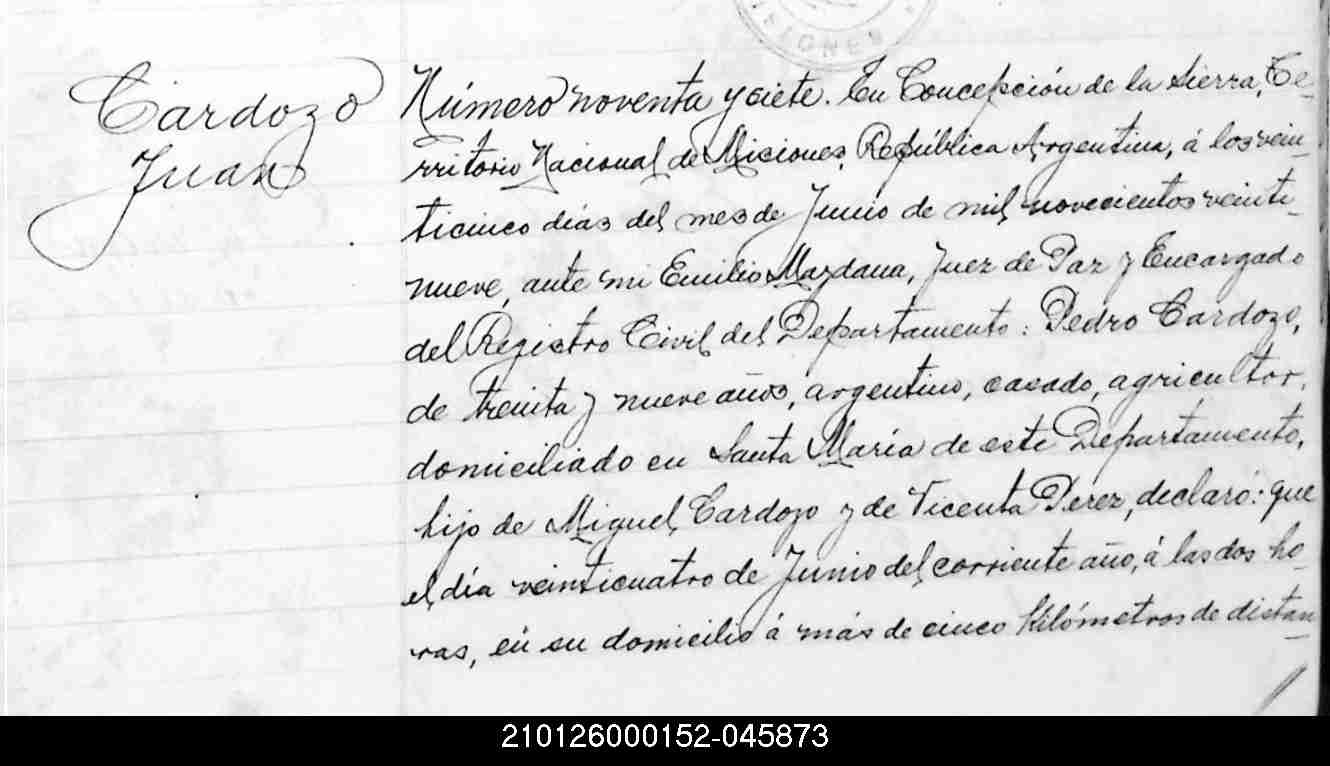 IONES
Cardozo
Juan
Número noventa y siete. En Concepción de la Sierra, Te-
rritorio Nacional de Misiones, República Argentina, á los vein-
ticinco días del mes de Junio de mil novecientos veinti-
nueve, ante mi Emilio Mazdana, Juez de Paz y Encargado
del Registro Civil del Departamento: Pedro Cardozo,
de treinta y nueve años, argentino, casado, agricultor,
domiciliado en Santa María de este Departamento,
hijo de Miguel Cardozo y de Vicenta Perez, declaró: que
el día veinticuatro de Junio del corriente año, á las dos ho-
ras, en su domicilio á más de cinco kilómetros de distan-
210126000152-045873